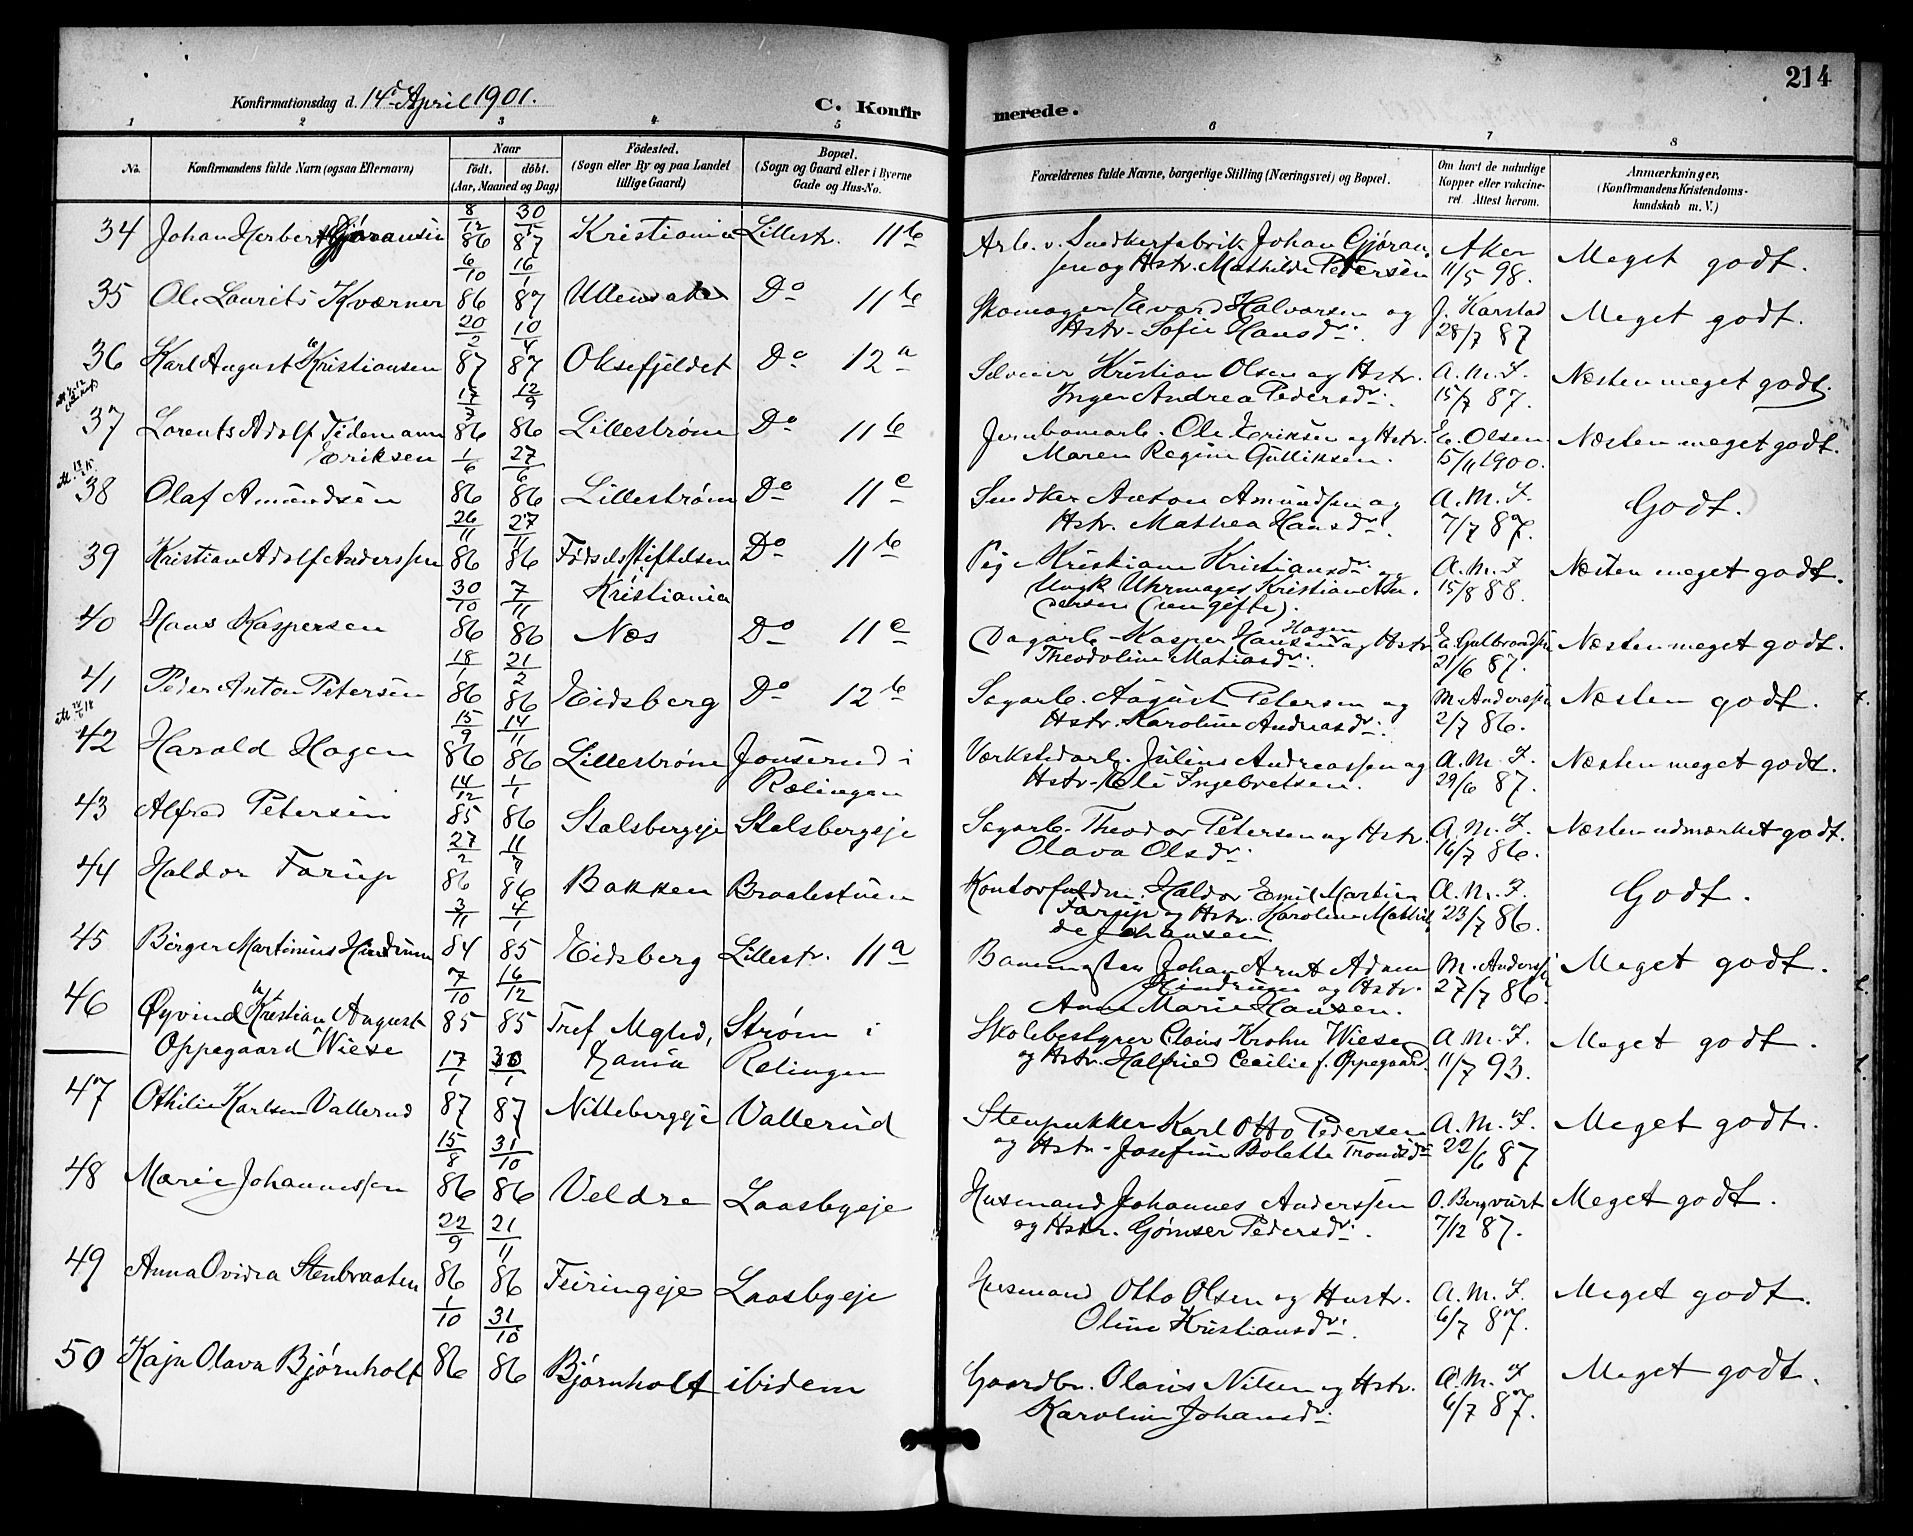 214
Konfirmationsdag d. 14de April 1901.
C. Konfir merede.
1 2 3 4 5 6 7 8
No. Konfirmandens fulde Navn (ogsaa Efternavn) Naar födt. döbt. (Aar, Maaned og Dag) Födested. (Sogn eller By og paa Landet tillige Gaard) Bopæl. (Sogn og Gaard eller i Byerne Gade og Hus-No. Forældrenes fulde Navne, borgerlige Stilling (Næringsvei) og Bopæl. Om havt de naturlige Kopper eller vakcineret. Attest herom. Anmærkninger. (Konfirmandens Kristendomskundskab m. V.)
34 Johan Herbert Gjøransen 8/12 86 30/1 87 Kristiania Lillestr. 11b Arb. v. Snedkerfabrik Johan Gjøran
sen og Hstr. Mathilde Petersen Aker 11/5 98. Meget godt.
35 Ole Laurits Kværner 6/10 86 16/1 87 Ullensaker Do 11b Skomager Edvard Halvorsen og
Hstr. Sofie Hansdr. J. Harstad 28/7 87 Meget godt.
36 Karl August Kristiansen 20/2 87 10/4 87 Oksefjeldet Do 12a Kristian Olsen og Hstr.
Inger Andrea Pedersdr. A. M. F. 15/7 87. Næsten meget godt.
37 Lorents Adolf Tidemann
Eriksen 17/7 86 12/9 86 Lillestrøm Do 11b Jernbanearb. Ole Eriksen og Hstr.
Maren Regine Gulliksen. E. Olsen 15/11 1900. Næsten meget godt.
38 Olaf Amundsen 1/6 86 27/6 86 Lillestrøm Do 11c Snedker Anton Amundsen og
Hstr. Mathea Hansdr. A. M. F. 7/7 87. Godt.
39 Kristian Adolf Anderssen 26/11 86 27/11 86 Fødselsstiftelsen
Kristiania Do 11b Pige Kristiane Kristiansdr. og
Ungk Uhrmager Kristian An
dersen (sen gifte). A. M. F 15/8 88. Næsten meget godt.
40 Hans Kaspersen 30/10 86 7/11 86 Næs Do 11c Dagarb. Kasper Hansen Hagen og Hstr
Theodoline Matiasdr. E. Gulbrandsen 21/6 87. Næsten meget godt.
41 Peder Anton Petersen 18/1 86 21/2 86 Eidsberg Do 12b Sagarb. August Petersen og
Hstr. Karoline Andreasdr. M. Anderssen 2/7 86. Næsten godt.
42 Harald Hagen 15/9 86 14/11 86 Lillestrøm Jonserud i
Rælingen Værkstedarb. Julius Andreassen og
Hstr. Ingebretsen. A. M. F. 29/6 87. Næsten meget godt.
43 Alfred Petersen 14/12 85 1/1 86 Stalsbergeje Stalsbergeje Sagarb. Theodor Petersen og Hstr.
Olava Olsdr. A. M. F. 16/7 86. Næsten udmærket godt.
44 Haldor Farup 27/2 86 11/7 86 Bakken Braatestuen Kontorfuldm. Haldor Emil Martin
Farup og Hstr. Karoline Mathil
de Johansen. A. M. F. 23/7 86. Godt.
45 Birger Martinius Hindrum 3/11 84 4/1 85 Eidsberg Lillestr. 11a Banemester Johan Arnt Adam
Hindrum og Hstr.
Anne Marie Hansen. M. Anderssen 27/7 86. Meget godt.
46 Øyvind Kristian August
Oppegaard Wiese 7/10 85 16/12 85 Tref. Mghd,
Hania Strøm i
Relingen Skolebestyrer Claus Krohn Wiese
og Hstr. Halfried Cecilie f. Oppegaard A. M. F. 11/7 93. Meget godt.
47 Othilie Karlsen Vallerud 17/1 87 30/1 87 Nittebergeje Vallerud Stenpukker Karl Otto Pedersen
og Hstr. Josefine Bolette Trondsdr A. M. F. 22/6 87 Meget godt.
48 Marie Johannessen 15/8 86 31/10 86 Veldre Laasbyeje Husmand Johannes Anderssen
og Hstr. Gjømser Pedersdr. O. Bergvurt 7/12 87. Meget godt.
49 Anna Ovidia Stenbraaten 22/9 86 21/11 86 Feiringeje Laasbyeje Husmand Otto Olsen og Hustr.
Oline Kristiansdr. A. M. F. 6/7 87. Meget godt.
50 Kaja Olava Bjørnholt 1/10 86 31/10 86 Bjørnholt ibidem Gaardbr. Olaus Nilsen og Hstr.
Karoline Johansdr. A. M. F 6/7 87. Meget godt.